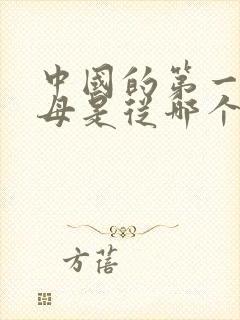 中國的第一
母是從哪个
方蓓